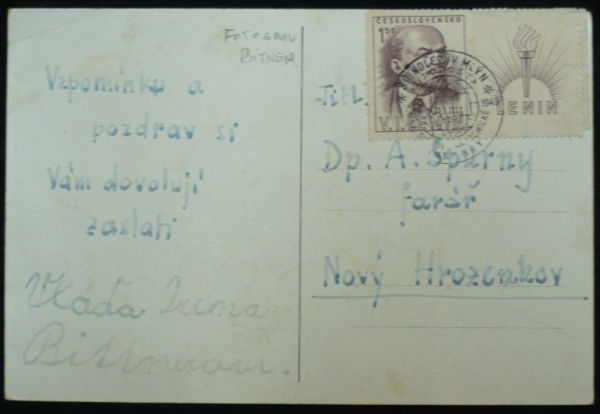 FOTOGRAF
BITNER
Vzpomínku a
pozdrav si
Vám dovolují
zaslati
Vláďa Irena
Bittnerovi.
ČESKOSLOVENSKO
1.50
V. I.
LENIN
ŠPINDLERŮV MLÝN
Titl.
Dp. A. Špurný
farář
Nový Hrozenkov